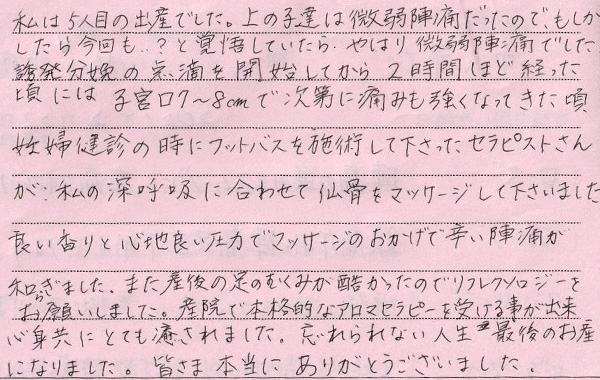 私は5人目の出産でした。上の子達は微弱陣痛だったのでもしか
したら今回も..?と覚悟していたら、やはり微弱陣痛でした
誘発分娩の点滴を開始してから2時間ほど経った
頃には 子宮口7〜8cmで次第に痛みも強くなってきた頃
妊婦健診の時にフットバスを施術して下さったセラピストさん
が、私の深呼吸に合わせて仙骨をマッサージして下さいました
良い香りと心地良い圧力でマッサージのおかげで辛い陣痛が
和らぎました。また産後の足のむくみが酷かったのでリフレクソロジーを
お願いしました。産院で本格的なアロマセラピーを受ける事が出来
心身共にとても癒されました。忘れられない人生最後のお産
になりました。皆さま本当にありがとうございました。